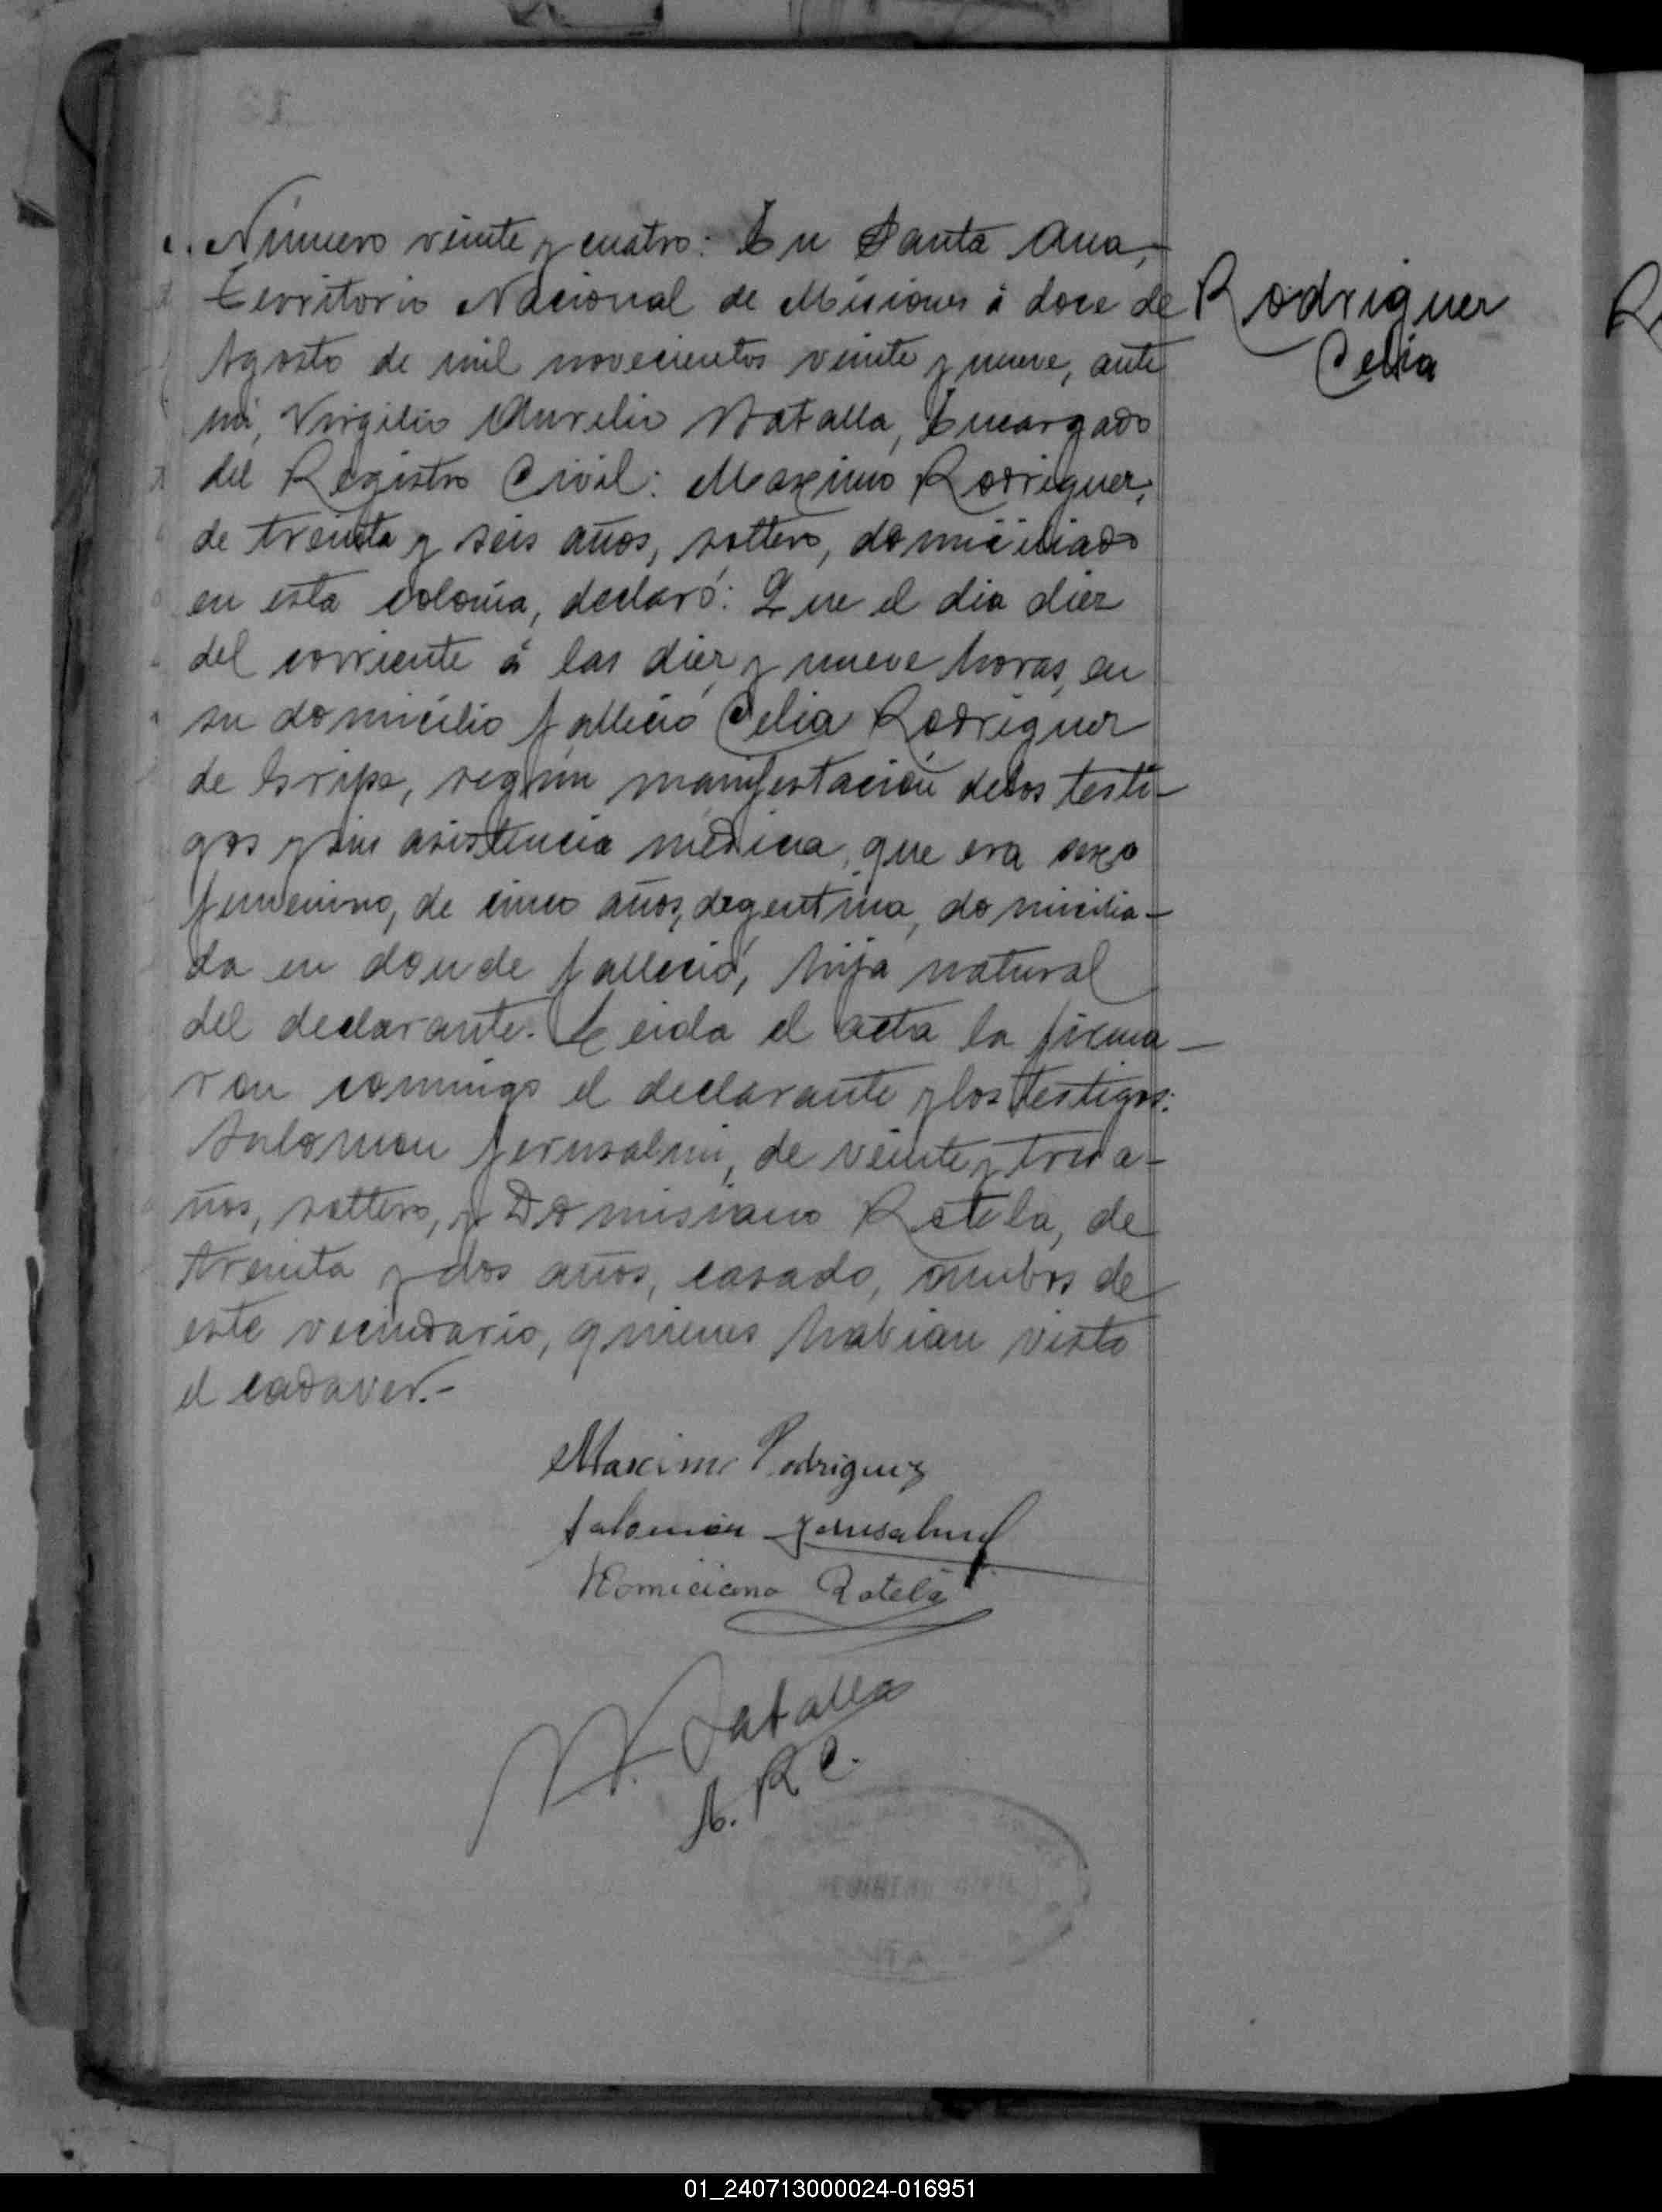 Número veinte y cuatro: En Santa Ana,
Territorio Nacional de Misiones á doce de
Agosto de mil novecientos veinte y nueve, ante
mi, Virgilio Aurelio Batalla, Encargado
del Registro Civil: Maximo Rodriguez,
de treinta y seis años, soltero, domiciliado
en esta colonia, declaró: Que el dia diez
del corriente á las diez y nueve horas, en
su domicilio falleció Celia Rodriguez
de Gripe, según manifestación delos testi-
gos y sin asistencia médica, que era sexo
femenino, de cinco años, argentina, domicilia-
da en donde falleció, hija natural
del declarante. Leida el acta la firma-
ron conmigo el declarante y los testigos:
Salomon Jerusalmi, de veinte y tres a-
ños, soltero, y Domisiano Rotela, de
treinta y dos años, casado, ambos de
este vecindario, quienes habian visto
el cadaver.-
Rodriguez
Celia
Maximo Rodriguez
Salomón Jerusalmi
Domiciano Rotela
Batalla
E. R C.
01_240713000024-016951